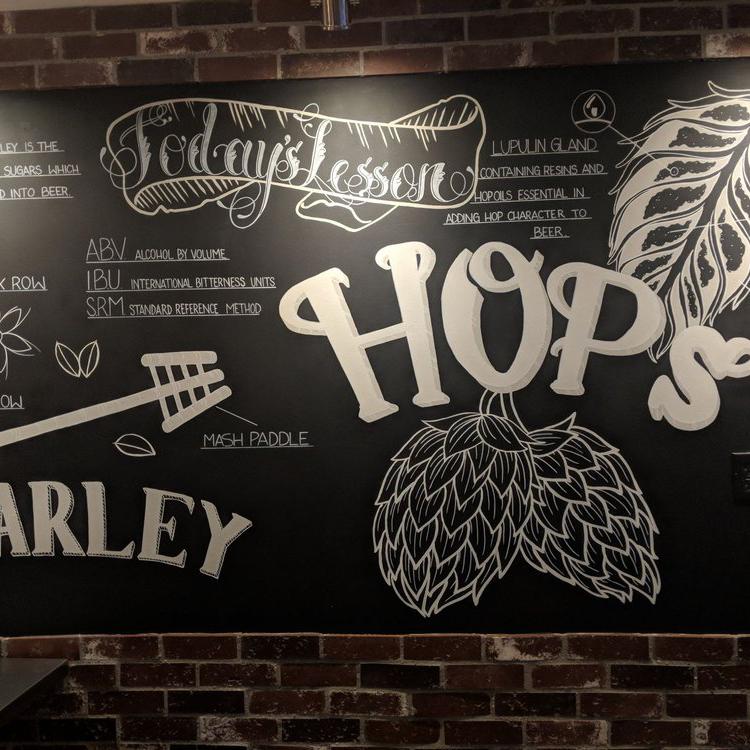 Today's Lesson
LEY IS THE
SUGARS WHICH
D INTO BEER.
LUPULIN GLAND
CONTAINING RESINS AND
HOPOILS ESSENTIAL IN
ADDING HOP CHARACTER TO
BEER.
ABV ALCOHOL BY VOLUME
IBU INTERNATIONAL BITTERNESS UNITS
SRM STANDARD REFERENCE METHOD
X ROW
OW
HOPS
MASH PADDLE
ARLEY